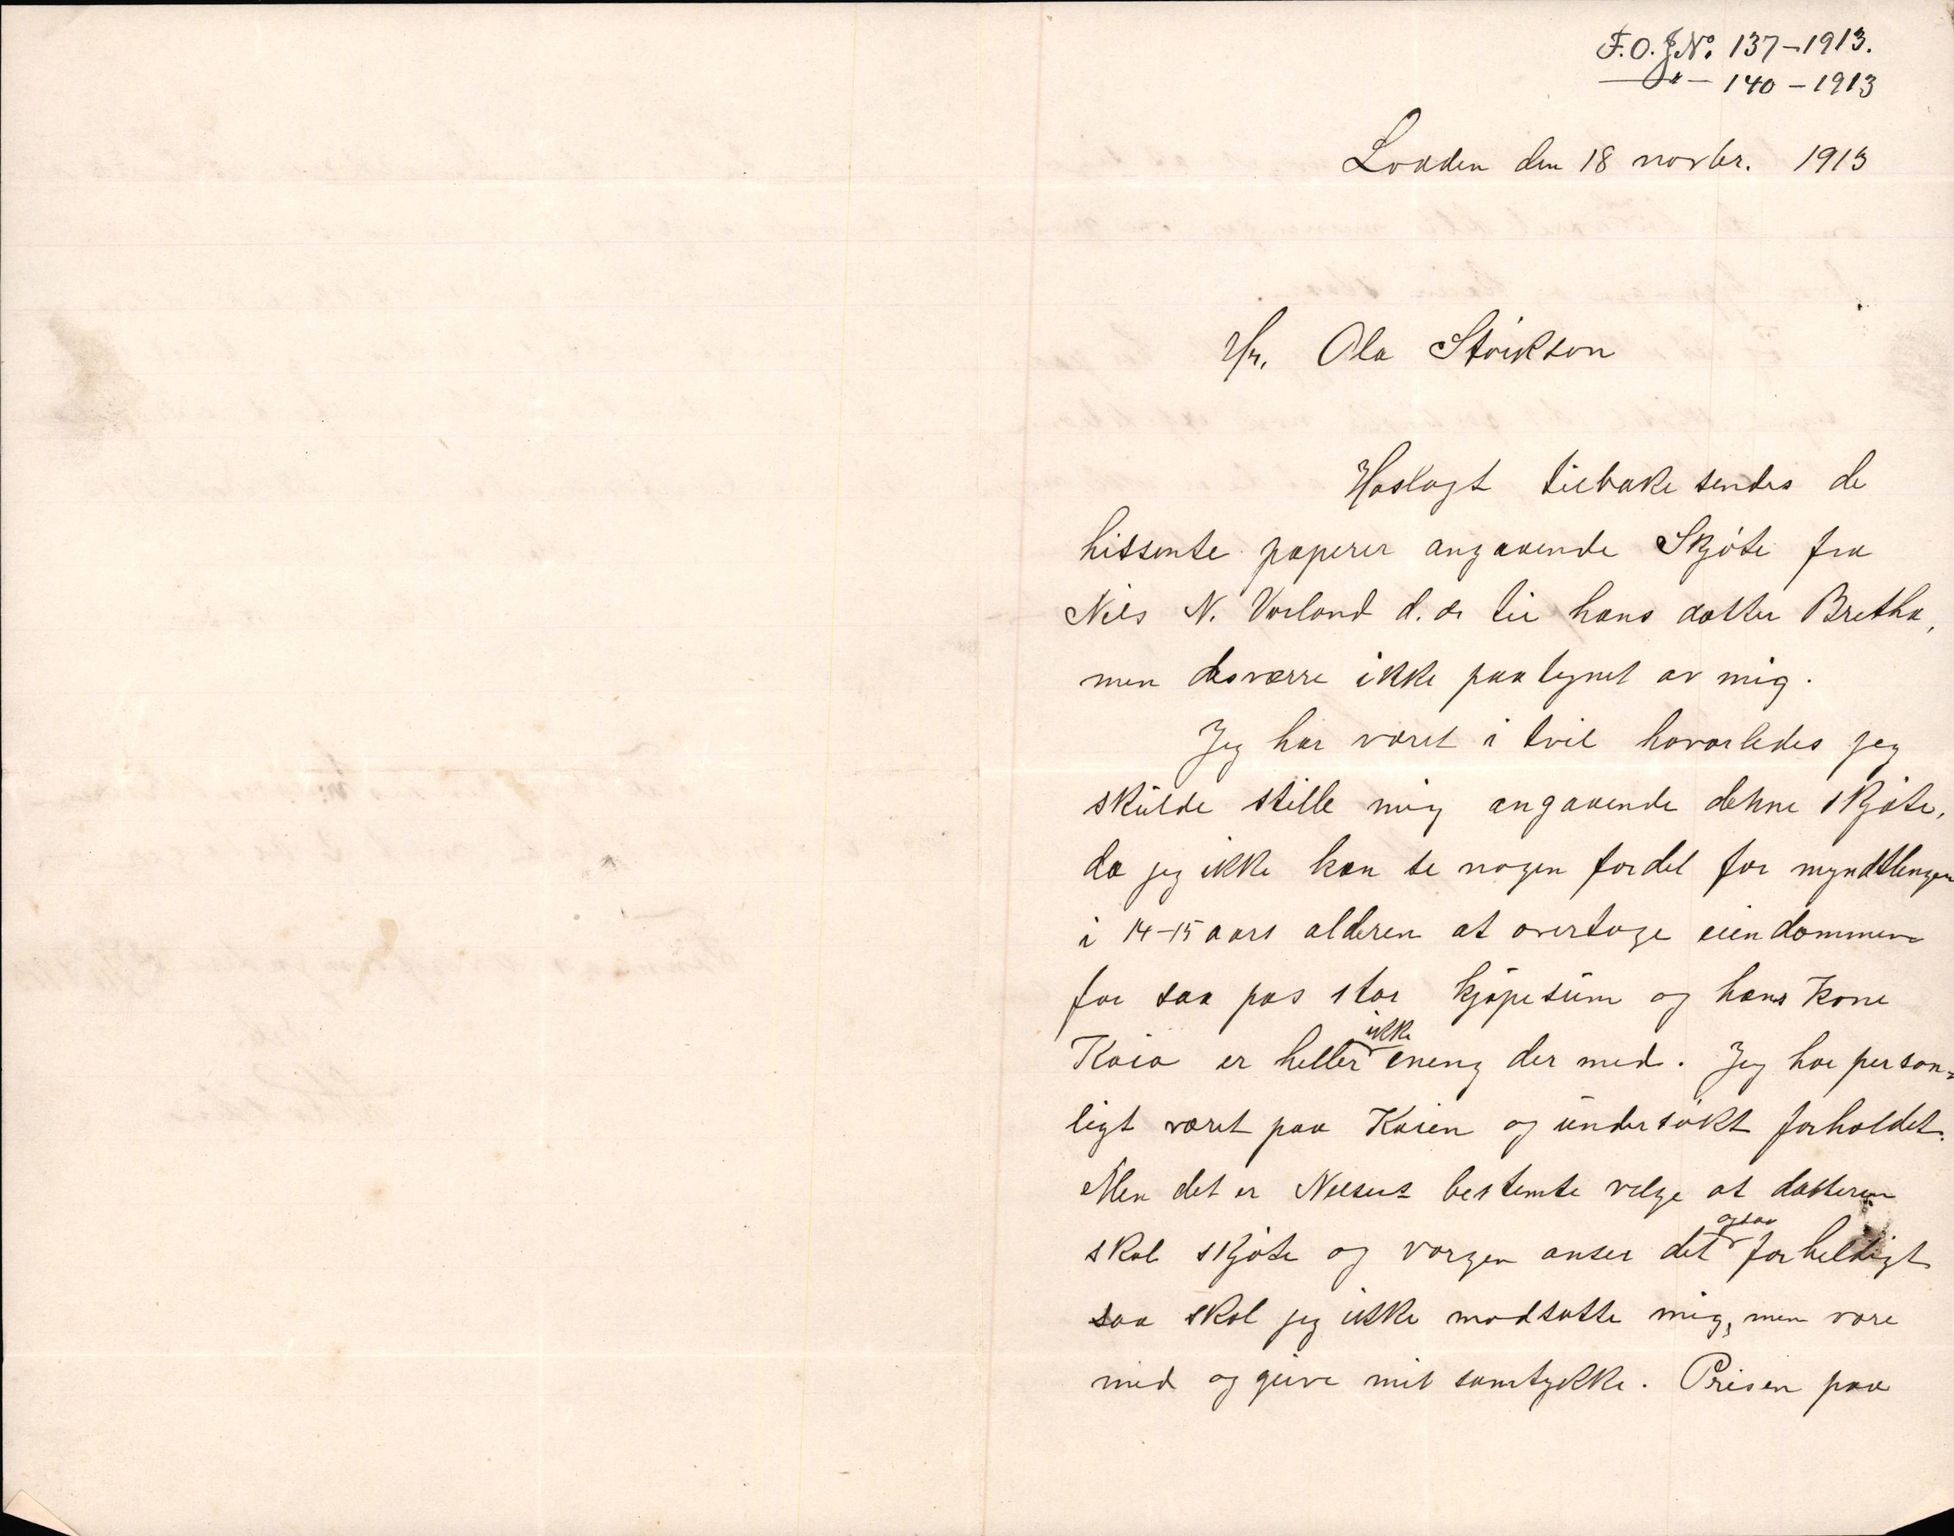 F.O.J.No. 137-1913.
—„— 140-1913
Lodden den 18 novbr. 1913
Hr. Ola Störkson
Hoslagt tilbake sendes de
hitsente paperer angaaende Skjöte fra
Nils N. Varland d.æ til hans datter Bretha,
men desværre ikke paategnet av mig.
Jeg har været i tvil hvorledes jeg
skulde stille mig angaaende denne skjöte,
da jeg ikke kan se nogen fordel for myndtlingen
i 14-15 aars alderen at overtage eiendommen
for saa pas stor kjöpesum og hans kone
Kaia er heller ikke eneng der med. Jeg har person-
ligt været paa Kaien og undersökt forholdet.
Men det er Nilsens bestemte velge at datteren
skal skjöte og vorgen anser det ogsaa for heldigt
saa skal jeg ikke modsatte mig, men være
med og geive mit samtykke. Prisen paa